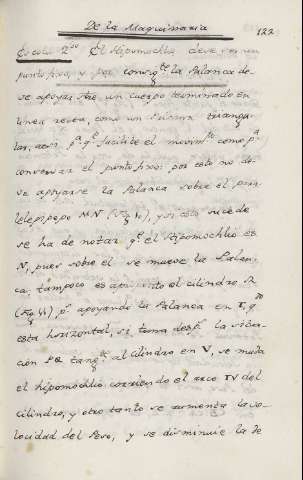 De la Maquinaria
122
Escolio 2.do El Hipomochlio deve ser un
punto fixo, y por conseq.te la Palanca de-
ve apoyar sre. un cuerpo terminado en
linea recta, como un Prisma triangu-
lar, assi p.a q.e facilite el movim.to como p.a
conservar el punto fixo: por esto no de-
ve apoyarse la Palanca sobre el para
lelepipepo MN (Fig.), y si esto sucede
se ha de notar q.e el Hipomochlio es
N, pues sobre el se mueve la Palan-
ca; tampoco es aproposito el cilindro R
(Fig.), p.s apoyando la Palanca en T, q.do
esta horizontal, si toma desp.s la situa-
cion PQ tang.te al cilindro en V, se muda
el hipomochlio corriendo el arco TV del
cilindro, y otro tanto se aumenta la ve-
locidad del Peso, y se disminuie la de